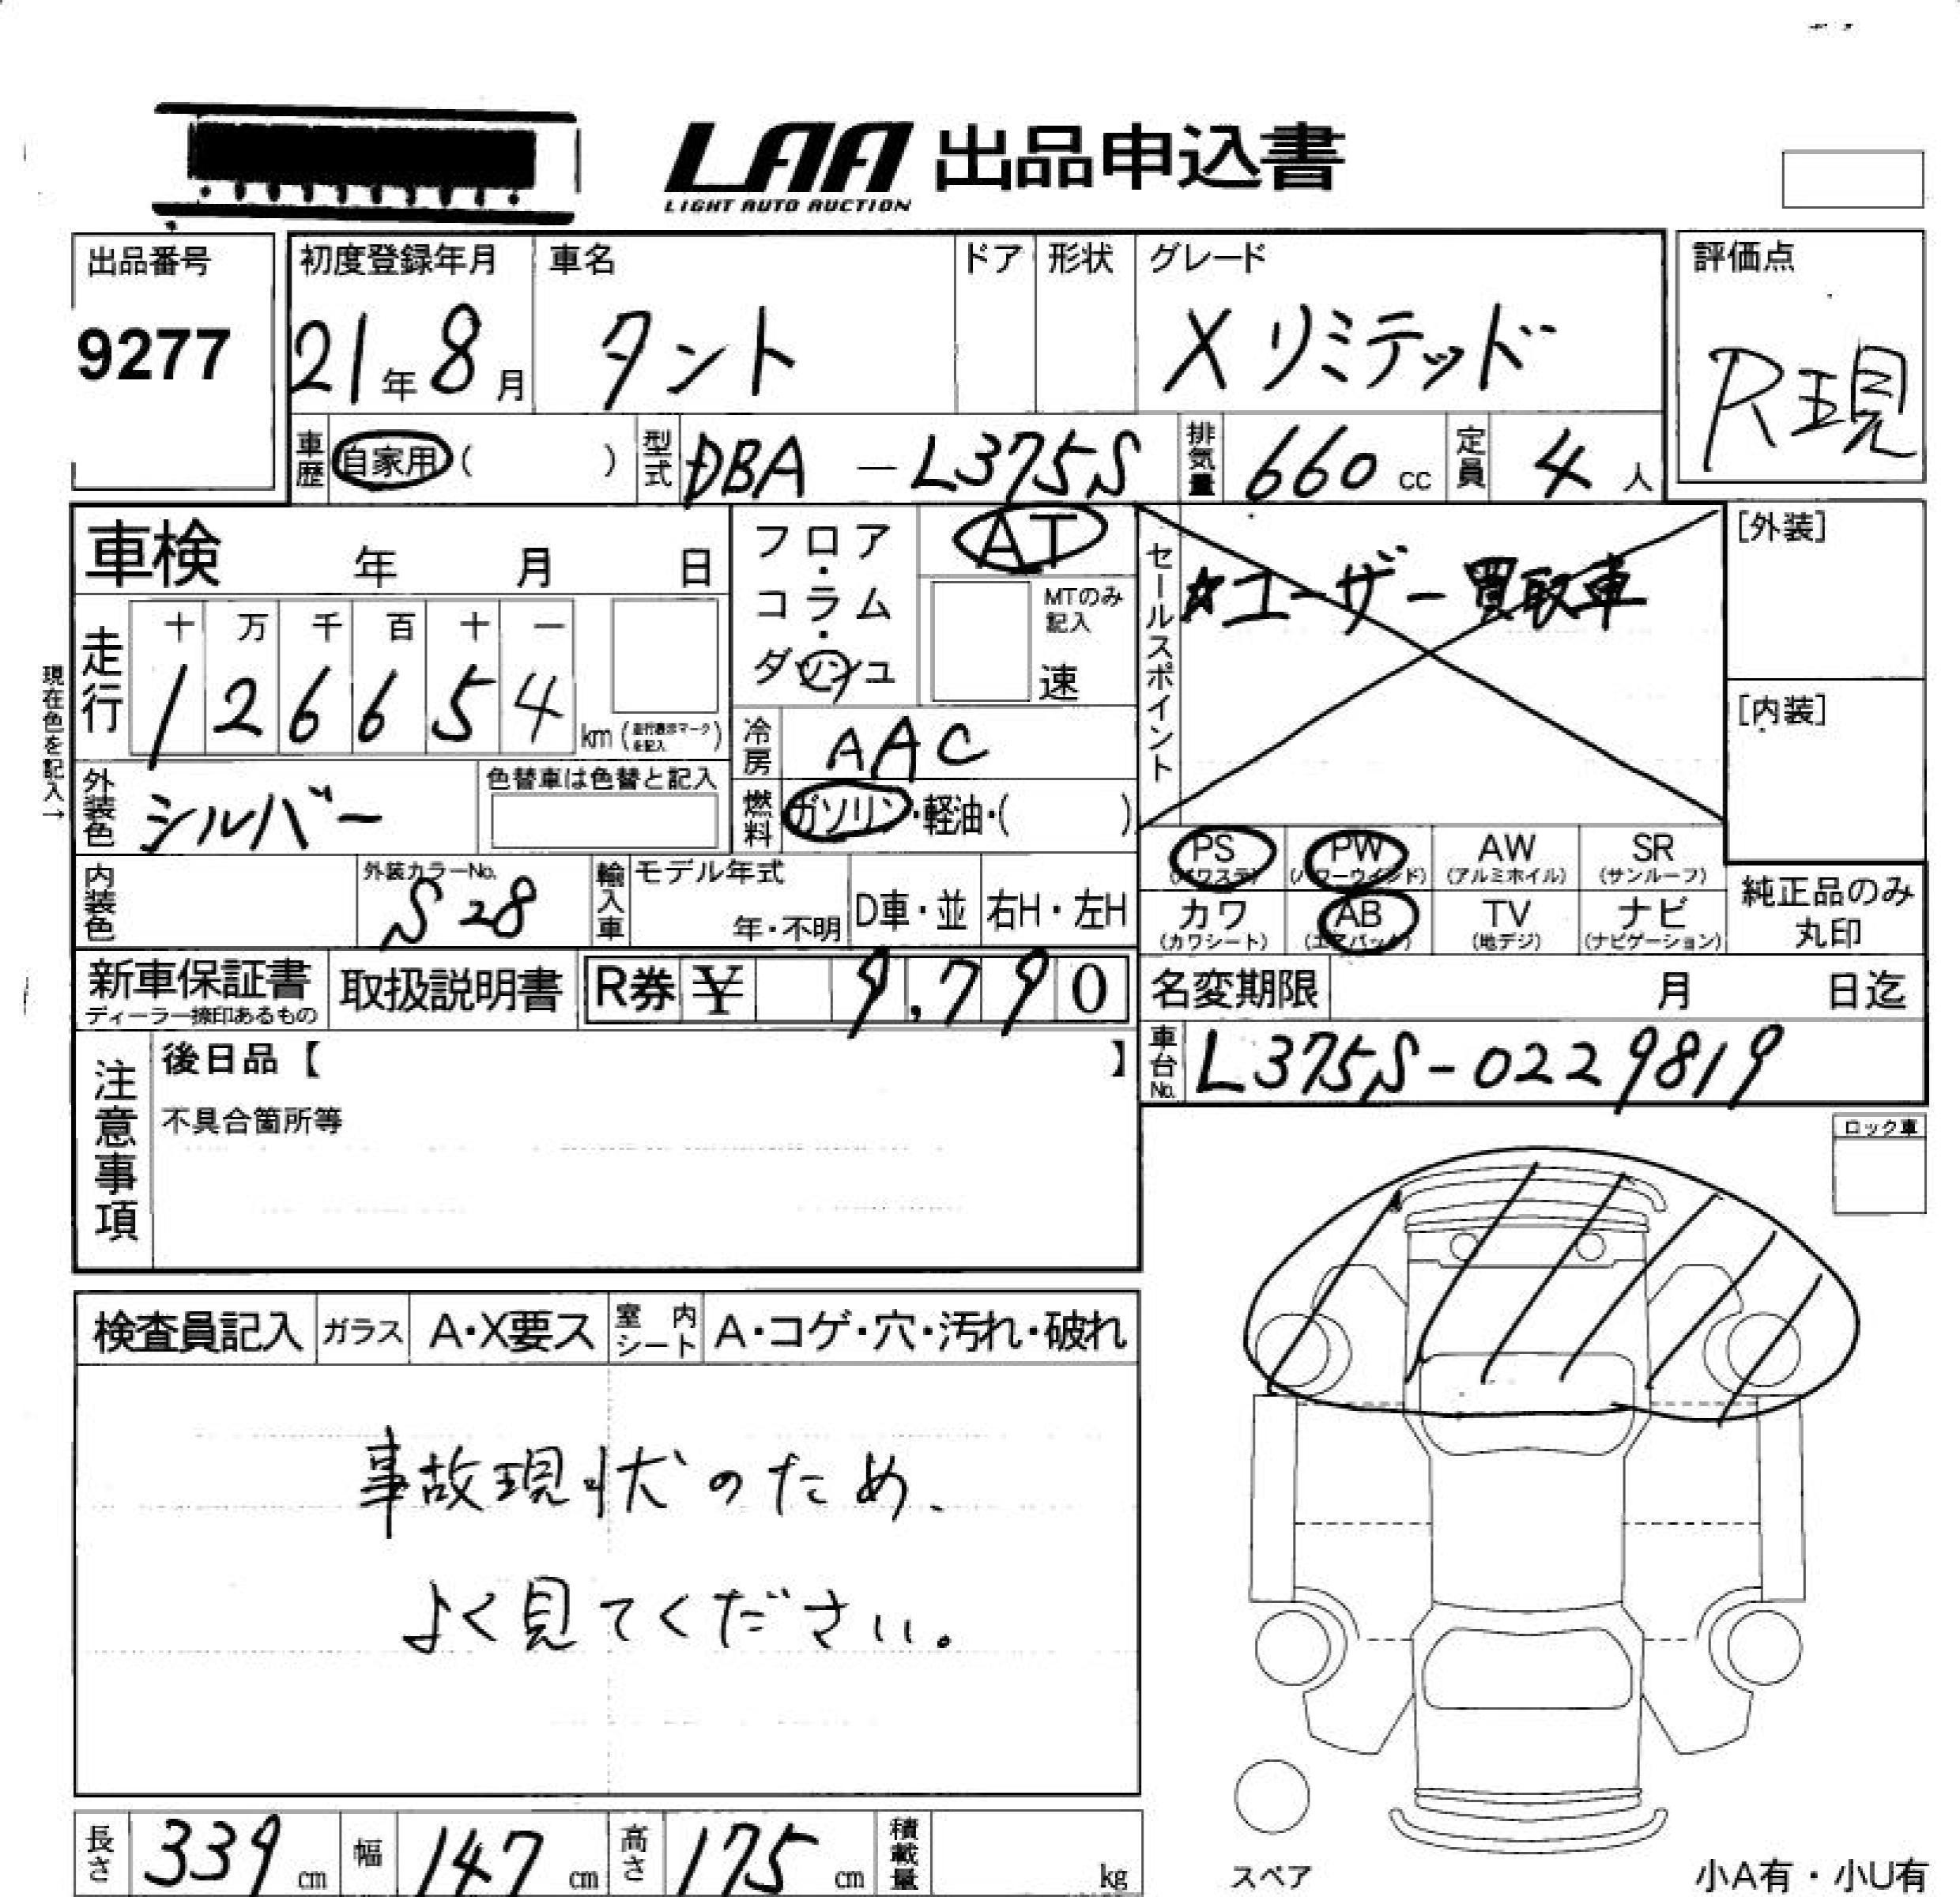 LAA 出品申込書
LIGHT AUTO AUCTION
出品番号
9277
初度登録年月
21年8月
車名
タント
ドア
形状
グレード
X リミテッド
評価点
R現
車歴
自家用( )
型式
DBA-L375S
排気量
660 cc
定員
4 人
車検 年 月 日
フロア・コラム・ダッシュ
AT
MTのみ記入
速
セールスポイント
☆ユーザー買取車
[外装]
[内装]
現在色を記入→
走行
十 万 千 百 十 一
1 2 6 6 5 4
km (走行表示マークを記入)
冷房
AAC
外装色
シルバー
色替車は色替と記入
燃料
ガソリン・軽油・( )
PS
(パワステ)
PW
(パワーウインド)
AW
(アルミホイル)
SR
(サンルーフ)
カワ
(カワシート)
AB
(エアバック)
TV
(地デジ)
ナビ
(ナビゲーション)
純正品のみ
丸印
内装色
外装カラーNo.
S28
輸入車
モデル年式
年・不明
D車・並
右H・左H
新車保証書
取扱説明書
R券 ¥ 9,790
名変期限 月 日迄
車台No.
L375S-0229819
注意事項
後日品【 】
不具合箇所等
ロック車
検査員記入
ガラス
A・X要ス
室内シート
A・コゲ・穴・汚れ・破れ
事故現状のため、
よく見てください。
長さ
339 cm
幅
147 cm
高さ
175 cm
積載量
kg
スペア
小A有・小U有